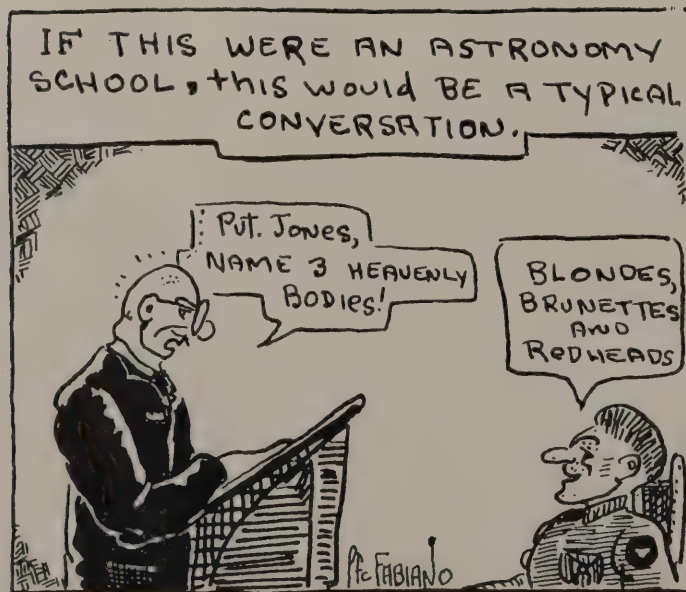 IF THIS WERE AN ASTRONOMY
SCHOOL, this would BE A TYPICAL
CONVERSATION.
Put. Jones,
NAME 3 HEAVENLY
BODIES!
BLONDES,
BRUNETTES
AND
REDHEADS
Pfc FABIANO